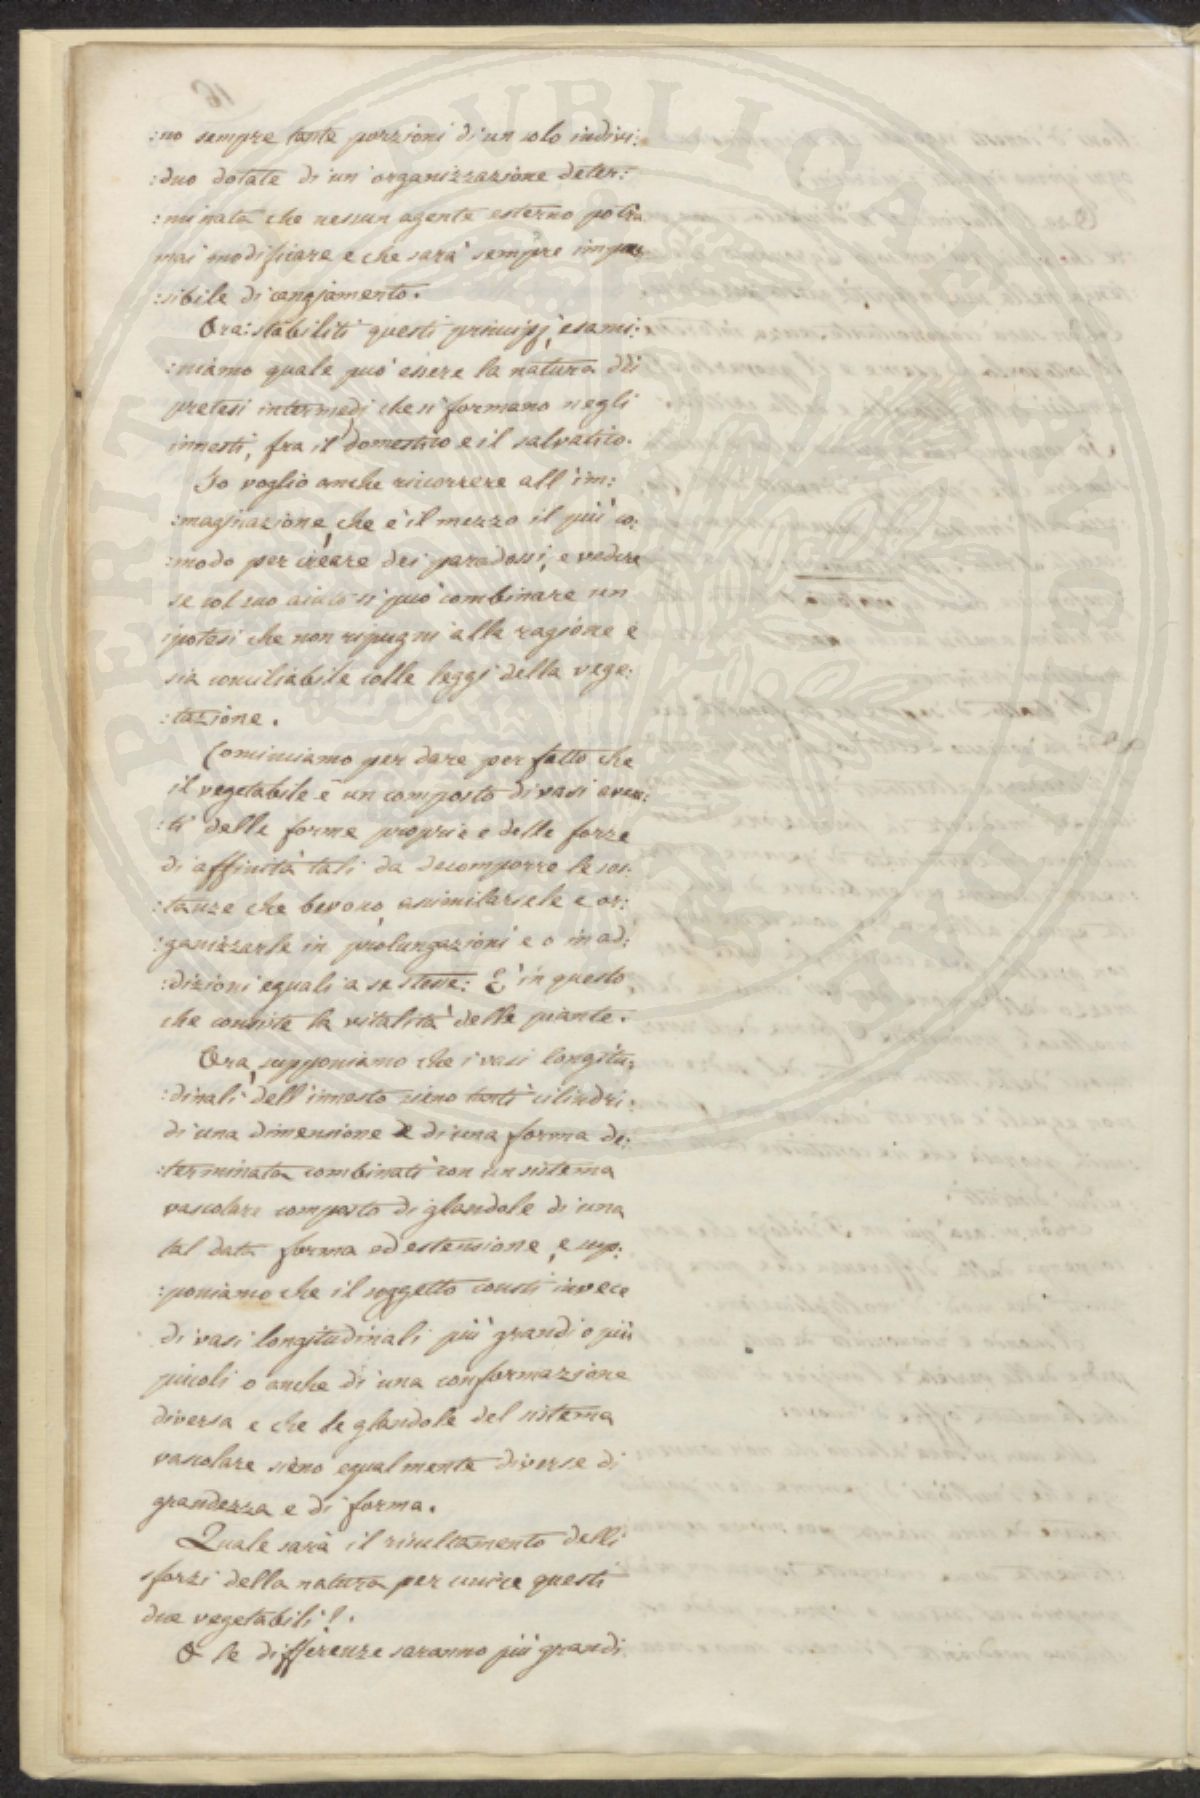 :no sempre tante porzioni di un solo indivi:
:duo dotate di un' organizzazione deter:
:minata che nessun agente esterno potra
mai modificare e che sarà sempre impas:
:sibile di cangiamento.
Ora: stabiliti questi principj, esami:
:niamo quale può essere la natura dei
pretesi intermedj che si formano negli
innesti, fra il domestico e il salvatico.
Io voglio anche ricorrere all' im:
:maginazione, che è il mezzo il più co:
:modo per creare dei paradossi, e vedere
se col suo aiuto si può combinare un
ipotesi che non ripugni alla ragione e
sia conciliabile colle leggi della vege:
:tazione.
Cominciamo per dare per fatto che
il vegetabile è un composto di vasi aven:
:ti delle forme proprie e delle forze
di affinità tali da decomporre le sos:
:tanze che bevono, assimilarsele e or:
:ganizzarle in prolungazioni e o in ad:
:dizioni eguali a se stesse: È in questo
che consiste la vitalità delle piante.
Ora, supponiamo che i vasi longitu:
:dinali dell' innesto sieno tanti cilindri
di una dimensione e di una forma de:
:terminata combinati con un sistema
vascolare composto di glandole di una
tal data forma ed estensione, e sup:
:poniamo che il soggetto consti invece
di vasi longitudinali più grandi o più
piccoli o anche di una conformazione
diversa e che le glandole del sistema
vascolare sieno egualmente diverse di
grandezza e di forma.
Quale sarà il risultamento delli
sforzi della natura per unire questi
due vegetabili?.
O le differenze saranno più grandi
PERITIA PUBLICAE